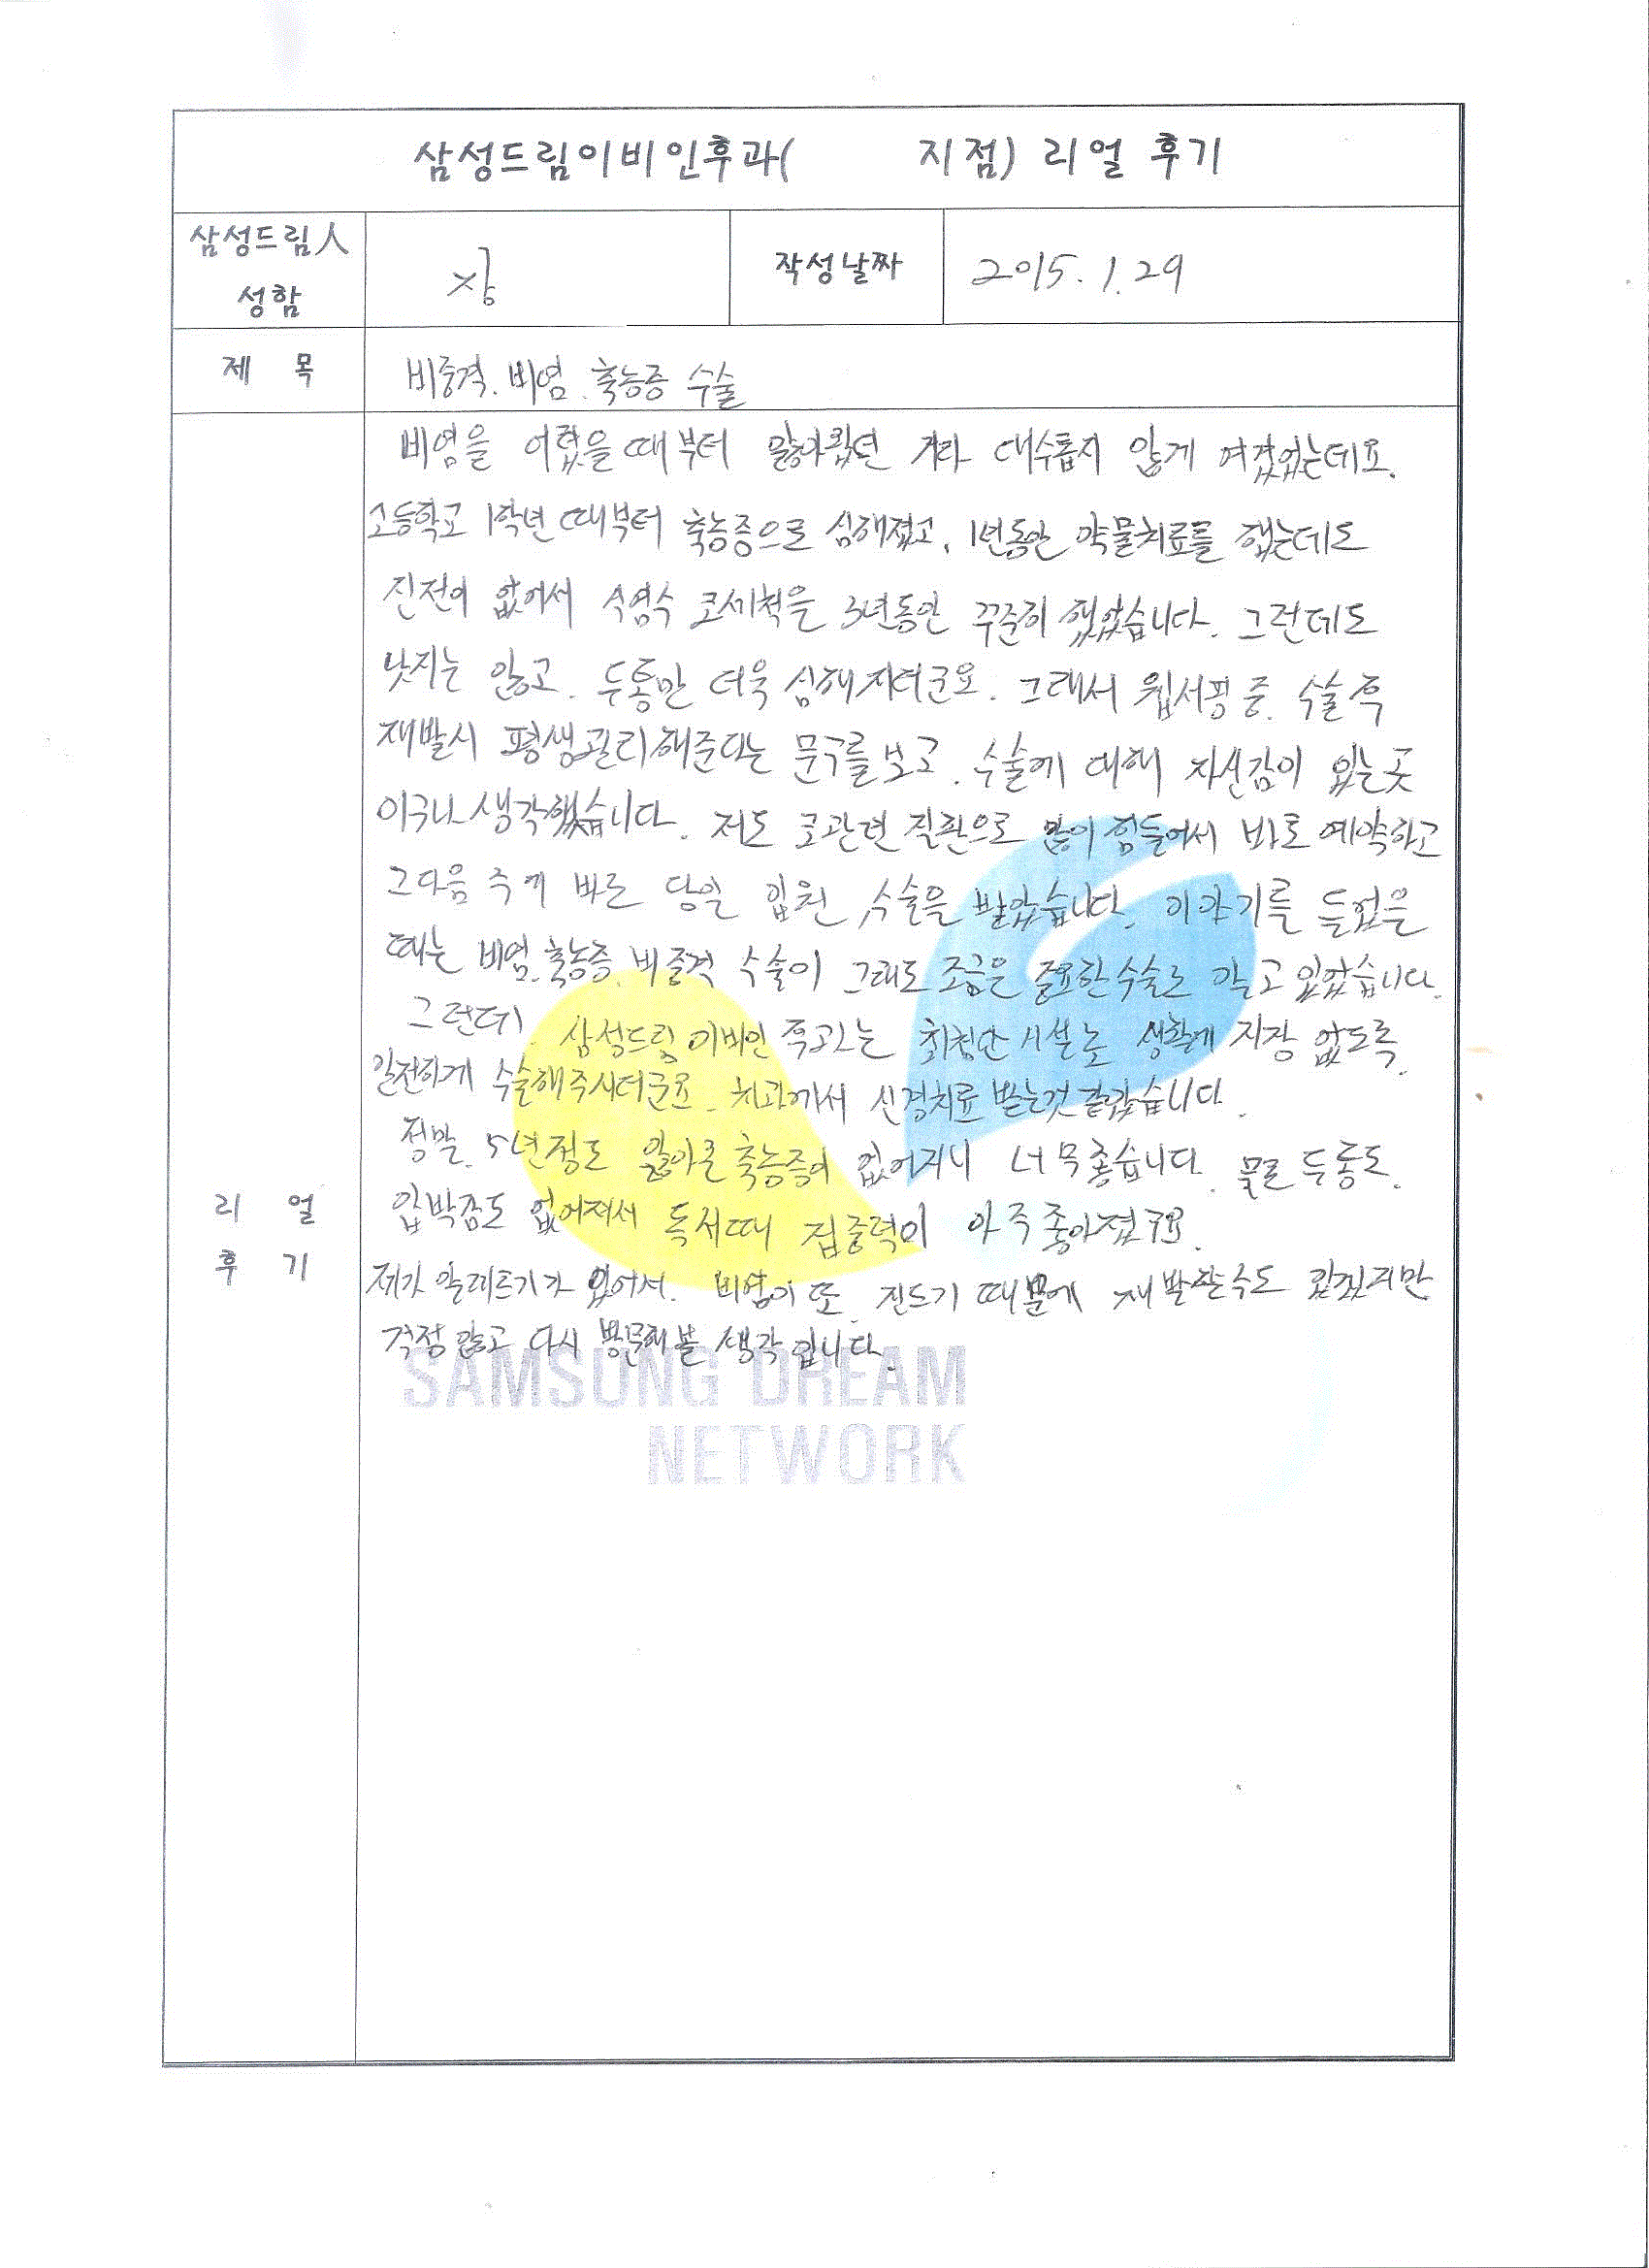 삼성드림이비인후과(          지점) 리얼 후기
삼성드림人
성함
장
작성날짜
2015. 1. 29
제 목
비중격. 비염. 축농증 수술
비염을 어렸을때부터 앓아왔던 거라 대수롭지 않게 여겼었는데요.
고등학교 1학년 때부터 축농증으로 심해졌고, 1년동안 약물치료를 했는데도
진전이 없어서 식염수 코세척을 3년동안 꾸준히 했었습니다. 그런데도
낫지는 않고. 두통만 더욱 심해지더군요. 그래서 웹서핑 중. 수술 후
재발시 평생관리해준다는 문구를 보고. 수술에 대해 자신감이 있는곳
이구나 생각했습니다. 저도 코관련 질환으로 많이 힘들어서 바로 예약하고
그다음 주에 바로 당일 입원 수술을 받았습니다. 이야기를 들었을
때는 비염.축농증.비중격 수술이 그래도 조금은 중요한수술로 알고 있었습니다.
그런데. 삼성드림 이비인 후과는 최첨단 시설로 생활에 지장 없도록.
안전하게 수술해주시더군요. 치과에서 신경치료 받는것 같았습니다.
정말. 5년정도 앓아온 축농증이 없어지니 너무좋습니다. 물론 두통도.
압박감도 없어져서 독서때 집중력이 아주좋아졌구요.
제가 알레르기가 있어서. 비염이 또. 진드기 때문에 재발할수도 있겠지만
걱정 않고 다시 방문해볼 생각입니다.
리 얼
후 기
SAMSUNG DREAM
NETWORK